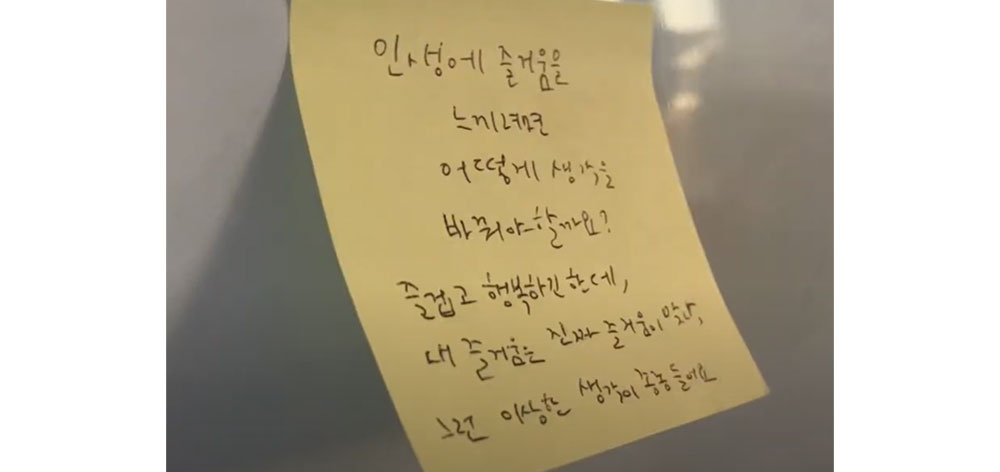 인생에 즐거움을
느끼려면
어떻게 생각을
바꿔야 할까요?
즐겁고 행복하긴한데,
내 즐거움은 진짜 즐거움이 맞나,
그런 이상한 생각이 종종 들어요